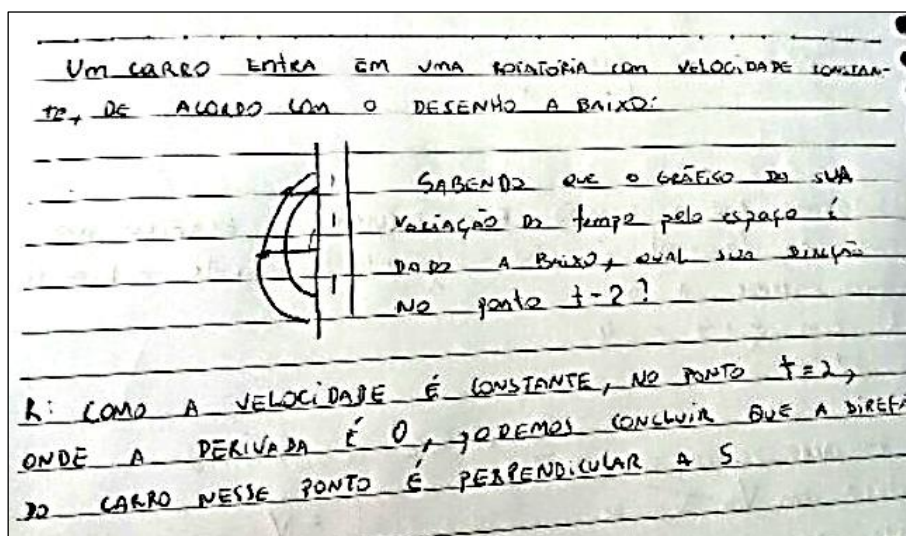 Um CARRO ENTRA EM UMA ROTATÓRIA COM VELOCIDADE CONSTAN-
TE, DE ACORDO COM O DESENHO A BAIXO:
SABENDO QUE O GRÁFICO DA SUA
VARIAÇÃO DO tempo pelo espaço É
DADO A BAIXO, QUAL SUA DIREÇÃO
NO ponto t-2?
R: COMO A VELOCIDADE É CONSTANTE, NO PONTO t=2,
ONDE A DERIVADA É 0, PODEMOS CONCLUIR QUE A DIREÇÃ
DO CARRO NESSE PONTO É PERPENDICULAR A S